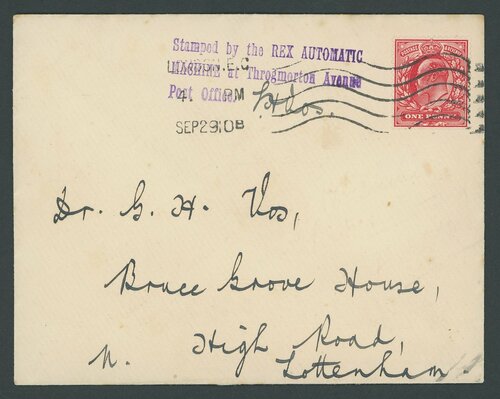 Stamped by the REX AUTOMATIC
MACHINE at Throgmorton Avenue
Post Office.
LONDON. E.C.
4 PM
SEP 29 10 B
GHVos.
POSTAGE REVENUE
ONE PENNY
Dr. G. H. Vos,
Bruce Grove House,
High Road,
N. Tottenham